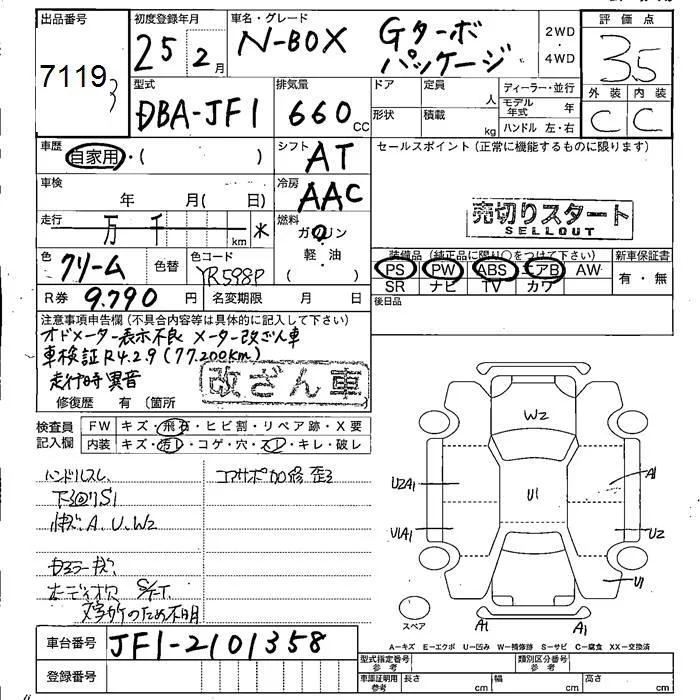 出品番号
7119
3
初度登録年月
25 2月
車名・グレード
N-BOX Gターボ
パッケージ
2WD
・
4WD
評価点
3.5
外装 内装
C C
型式
DBA-JF1
排気量
660 CC
ドア
定員
人
形状
積載
kg
ディーラー・並行
モデル年式 年
ハンドル 左・右
車歴
自家用・( )
シフト
AT
セールスポイント(正常に機能するものに限ります)
車検
年 月( 日)
冷房
AAC
売切りスタート
SELLOUT
走行
万 千 km
燃料
ガソリン
軽・油
( )
色
クリーム
色替
色コード
YR598P
装備品(純正品に限り○をつけて下さい)
PS PW ABS エアB AW
SR ナビ TV カワ
新車保証書
有・無
R券 9.790 円
名変期限 月 日
後日品
注意事項申告欄(不具合内容等は具体的に記入して下さい)
オドメーター表示不良 メーター改ざん車
車検証R4.2.9(77,200km)
走行時異音
改ざん車
修復歴 有 (箇所
検査員
記入欄
FW キズ・飛石・ヒビ割・リペア跡・X要
内装 キズ・汚レ・コゲ・穴・スレ・キレ・破レ
ハンドルスレ
コアサポ加修歪ミ
下廻りS1
A、U、W2
W2
U2A1
A1
U1
U1A1
U2
U1
スペア
A1
A1
A=キズ E=エクボ U=凹み W=補修跡 S=サビ C=腐食 XX=交換済
車台番号
JF1-2101358
登録番号
型式指定番号
参考
類別区分番号
参考
車庫証明用
参考
長さ cm
幅 cm
高さ cm